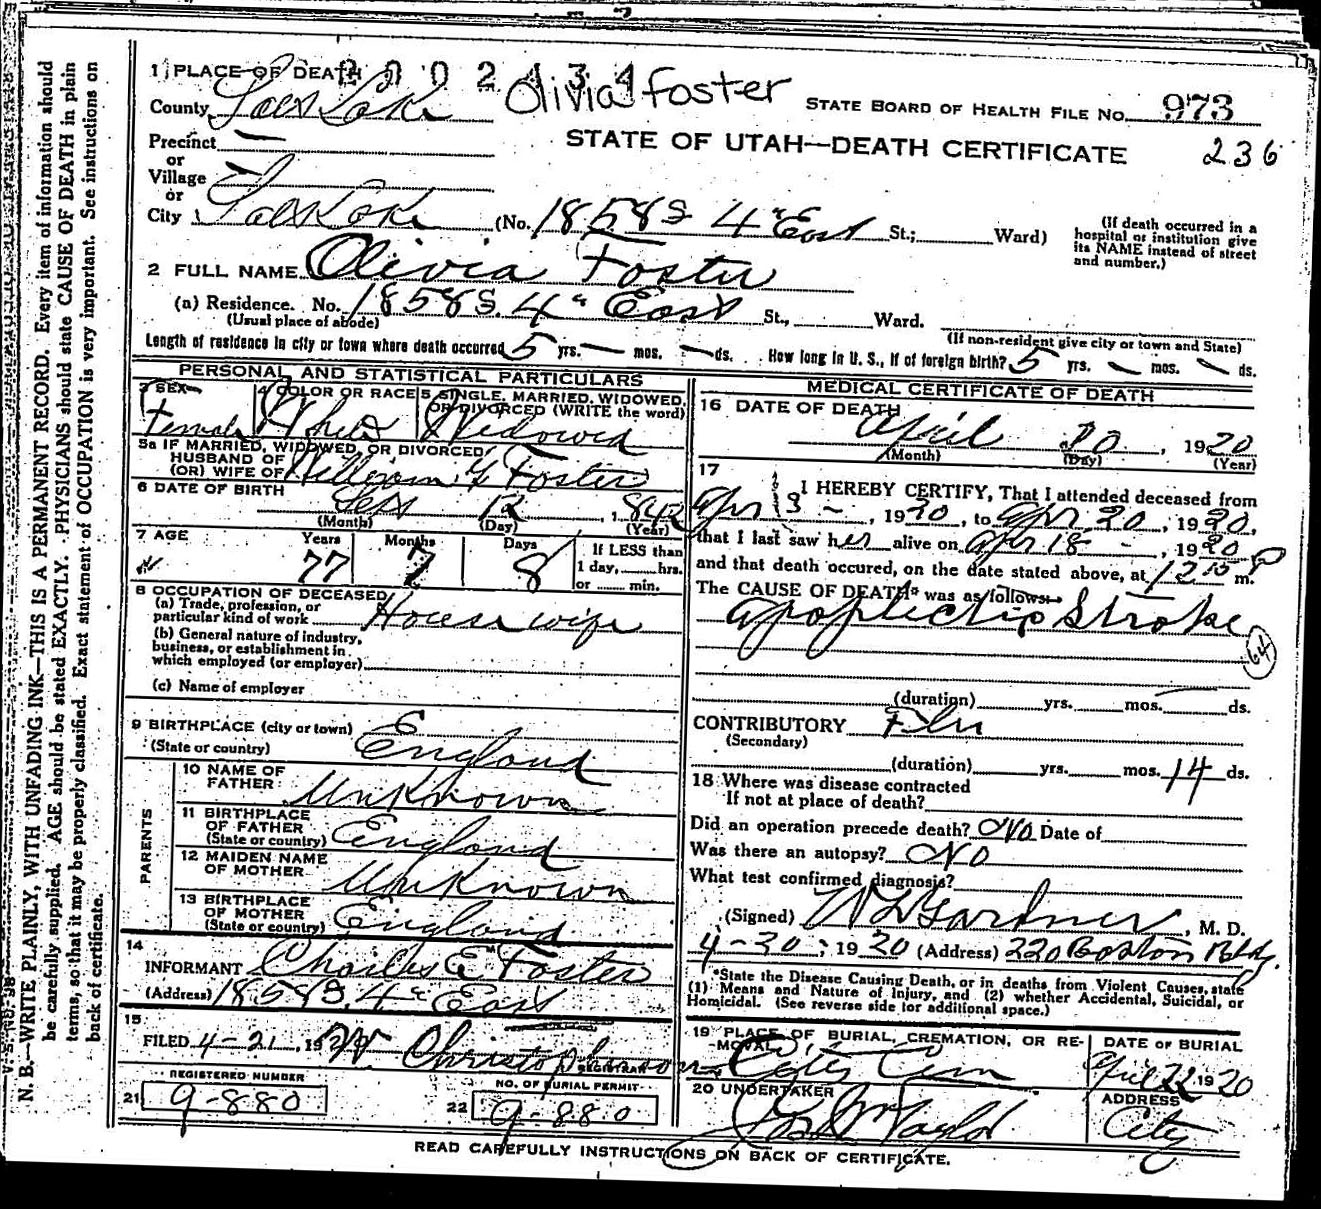 1 PLACE OF DEATH 2002434
County Salt Lake Olivia Foster STATE BOARD OF HEALTH FILE NO. 973
Precinct — STATE OF UTAH—DEATH CERTIFICATE 236
or
Village —
or
City Salt Lake (No. 1858 S 4" East St.; Ward) (If death occurred in a hospital or institution give its NAME instead of street and number.)
2 FULL NAME Olivia Foster
(a) Residence. No. 1858 S. 4" East St., Ward.
(Usual place of abode) (If non-resident give city or town and State)
Length of residence in city or town where death occurred 5 yrs. — mos. — ds. How long in U. S., if of foreign birth? 5 yrs. — mos. — ds.
PERSONAL AND STATISTICAL PARTICULARS
3 SEX 4 COLOR OR RACE 5 SINGLE, MARRIED, WIDOWED, OR DIVORCED (WRITE the word)
Female White Widowed
5a IF MARRIED, WIDOWED, OR DIVORCED
HUSBAND OF
(OR) WIFE OF William G Foster
6 DATE OF BIRTH Sept 12, 1842
(Month) (Day) (Year)
7 AGE Years Months Days If LESS than
77 7 8 1 day, hrs.
or min.
8 OCCUPATION OF DECEASED
(a) Trade, profession, or
particular kind of work House wife
(b) General nature of industry,
business, or establishment in
which employed (or employer)
(c) Name of employer
9 BIRTHPLACE (city or town)
(State or country) England
PARENTS
10 NAME OF
FATHER Unknown
11 BIRTHPLACE
OF FATHER
(State or country) England
12 MAIDEN NAME
OF MOTHER Unknown
13 BIRTHPLACE
OF MOTHER
(State or country) England
14
INFORMANT Charles E Foster
(Address) 1858 S. 4" East
15
FILED 4-21, 1920 W. Christopherson
REGISTRAR
REGISTERED NUMBER NO. OF BURIAL PERMIT
21 9-880 22 9-880
MEDICAL CERTIFICATE OF DEATH
16 DATE OF DEATH
April 20, 1920
(Month) (Day) (Year)
17
I HEREBY CERTIFY, That I attended deceased from
Apr 13 -, 1920, to Apr 20, 1920,
that I last saw her alive on Apr 18 -, 1920
and that death occured, on the date stated above, at 12 10 P m.
The CAUSE OF DEATH* was as follows:
Apoplectic Stroke
64
(duration) yrs. mos. ds.
CONTRIBUTORY Flu
(Secondary)
(duration) yrs. mos. 14 ds.
18 Where was disease contracted
If not at place of death?
Did an operation precede death? No Date of
Was there an autopsy? No
What test confirmed diagnosis?
(Signed) W L Gardner, M. D.
4-20, 1920 (Address) 220 Boston Bldg.
*State the Disease Causing Death, or in deaths from Violent Causes, state
(1) Means and Nature of Injury, and (2) whether Accidental, Suicidal, or
Homicidal. (See reverse side for additional space.)
19 PLACE OF BURIAL, CREMATION, OR RE- DATE OF BURIAL
-MOVAL City Cem April 22 1920
20 UNDERTAKER ADDRESS
Jos Wm Taylor City
READ CAREFULLY INSTRUCTIONS ON BACK OF CERTIFICATE.
N. B.—WRITE PLAINLY, WITH UNFADING INK—THIS IS A PERMANENT RECORD. Every item of information should
be carefully supplied. AGE should be stated EXACTLY. PHYSICIANS should state CAUSE OF DEATH in plain
terms, so that it may be properly classified. Exact statement of OCCUPATION is very important. See instructions on
back of certificate.